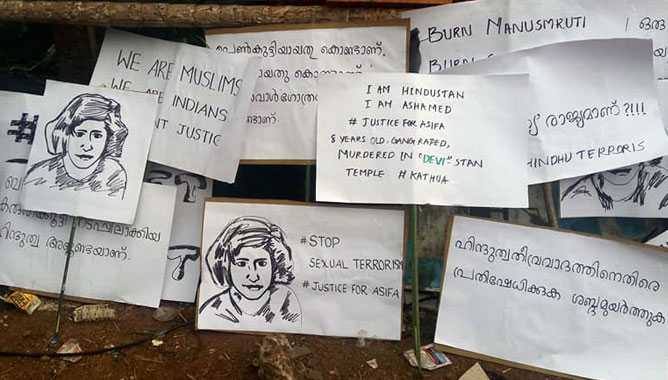 പെൺകുട്ടിയായതു കൊണ്ടാണ്.
WE ARE MUSLIMS
WE ARE INDIANS
JUSTIC
BURN MANUSMRUTI
BURN
ഒരു
I AM HINDUSTAN
I AM ASHAMED
# JUSTICE FOR ASIFA
8 YEARS OLD. GANGRAPED,
MURDERED IN "DEVI" STAN
TEMPLE # KATHUA
രാജ്യമാണ് ?!!!
HINDHU TERRORIS
#
ഹിന്ദുത്വ അജണ്ടയാണ്.
# STOP
SEXUAL TERRORISM
# JUSTICE FOR ASIFA
ഹിന്ദുത്വതീവ്രവാദത്തിനെതിരെ
പ്രതിഷേധിക്കുക ശബ്ദമുയർത്തുക